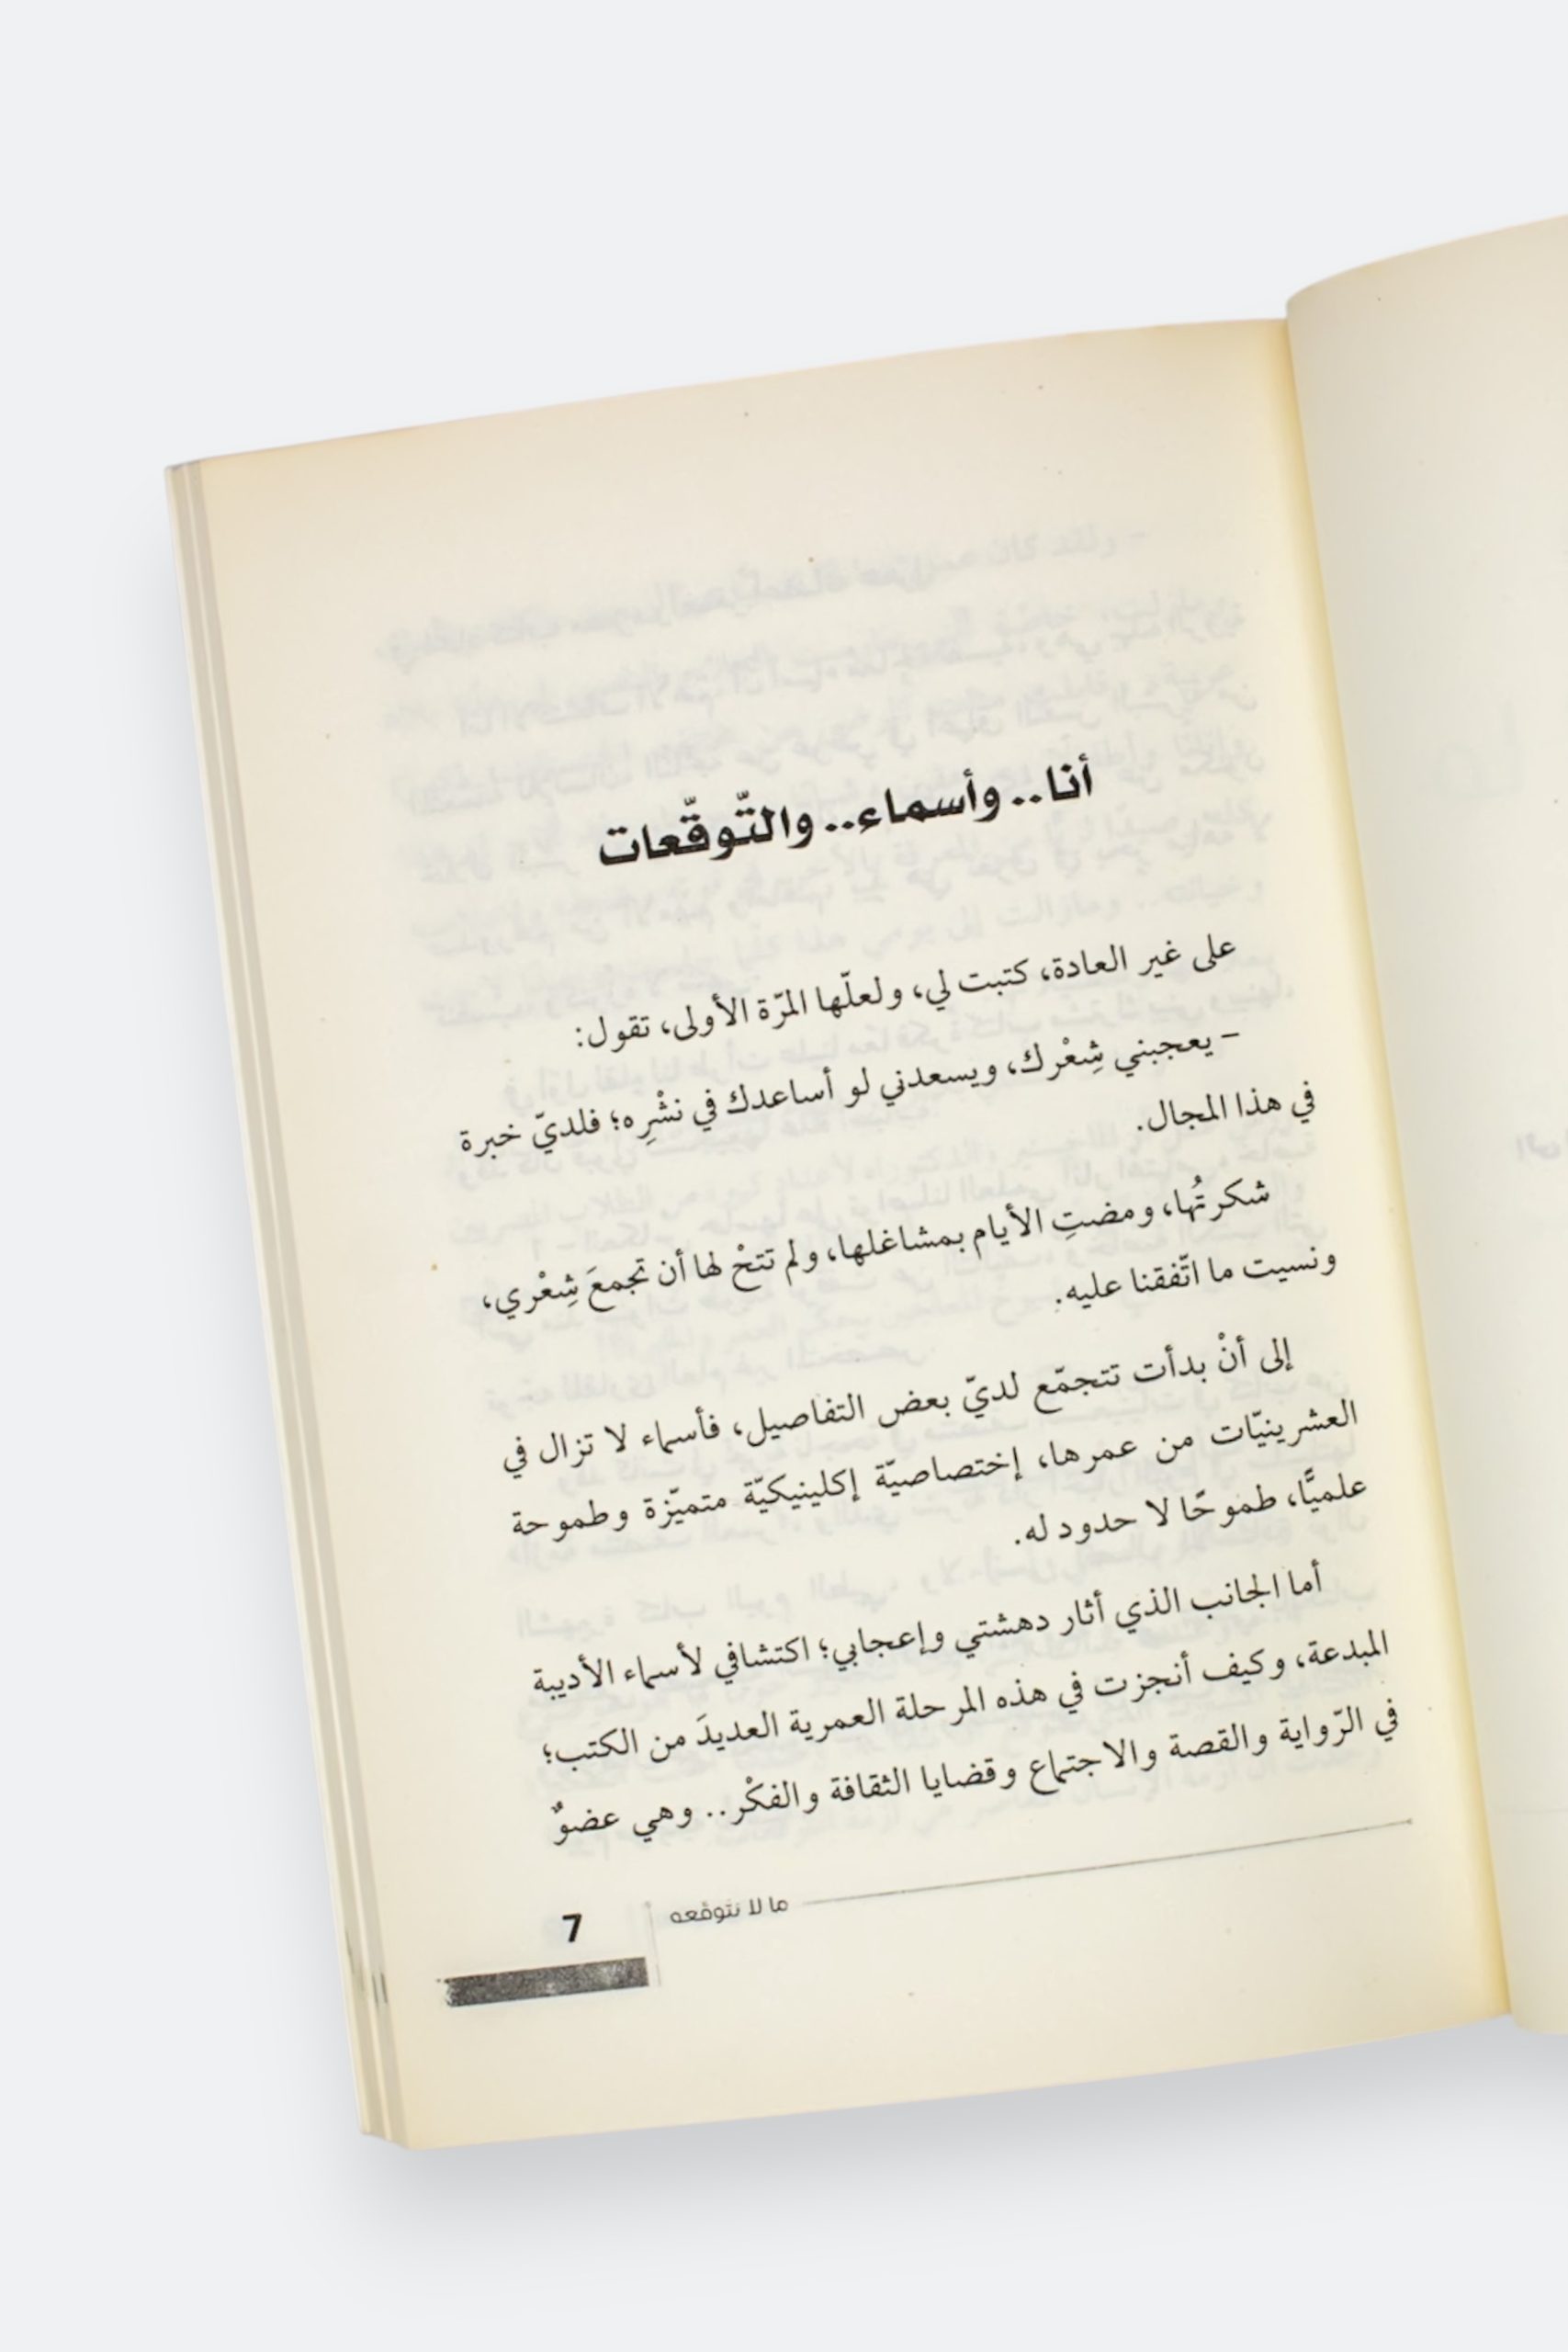 أنا.. وأسماء.. والتّوقّعات
على غير العادة، كتبت لي، ولعلّها المرّة الأولى، تقول:
– يعجبني شِعْرك، ويسعدني لو أساعدك في نشْرِه؛ فلديّ خبرة
في هذا المجال.
شكرتُها، ومضتِ الأيام بمشاغلها، ولم تتحْ لها أن تجمعَ شِعْري،
ونسيت ما اتّفقنا عليه.
إلى أنْ بدأت تتجمّع لديّ بعض التفاصيل، فأسماء لا تزال في
العشرينيّات من عمرها، إختصاصيّة إكلينيكيّة متميّزة وطموحة
علميًّا، طموحًا لا حدود له.
أما الجانب الذي أثار دهشتي وإعجابي؛ اكتشافي لأسماء الأديبة
المبدعة، وكيف أنجزت في هذه المرحلة العمرية العديدَ من الكتب؛
في الرّواية والقصة والاجتماع وقضايا الثقافة والفكْر.. وهي عضوٌ
ما لا نتوقعه
7